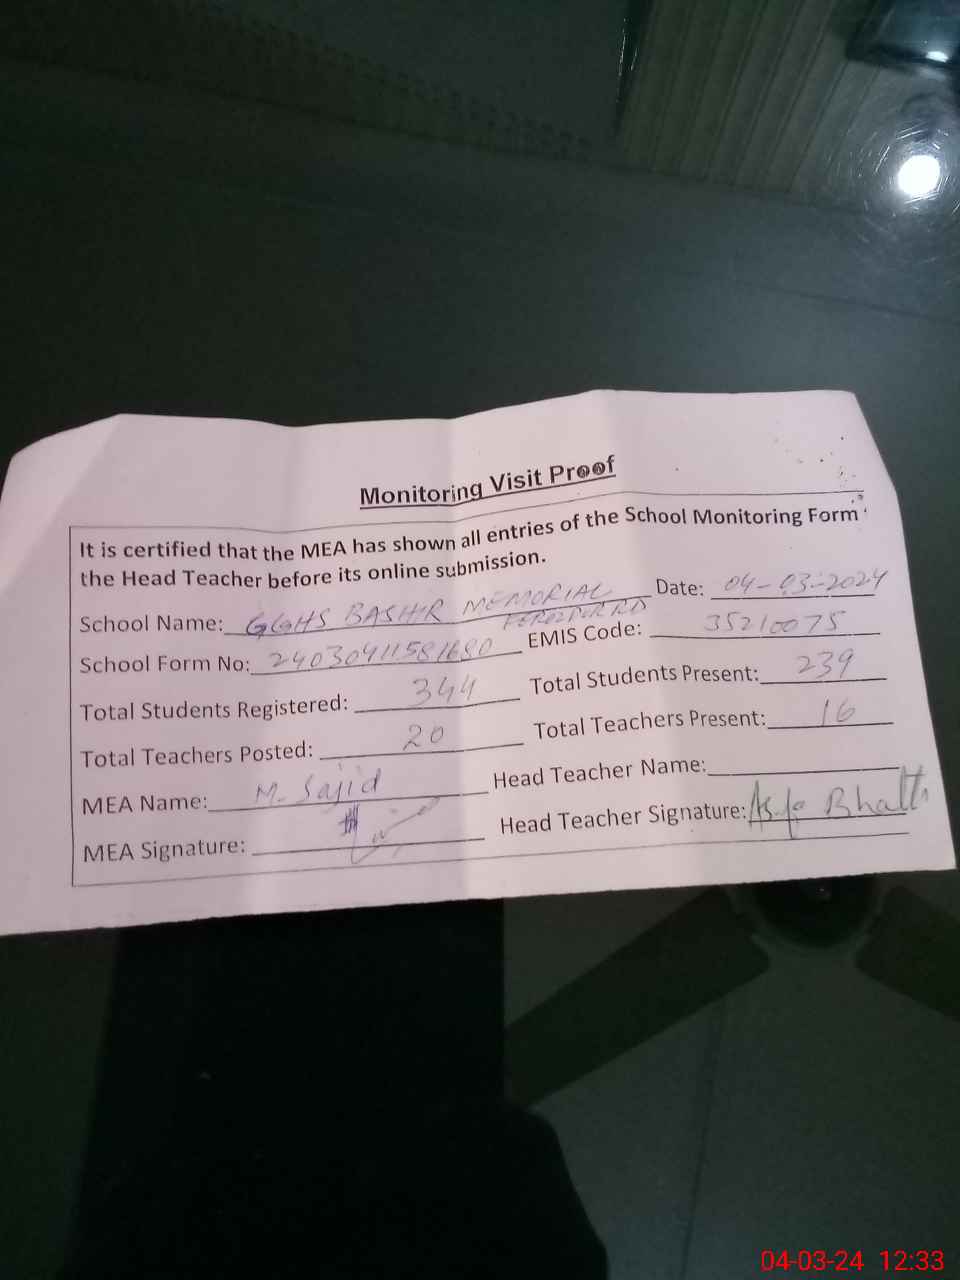 Monitoring Visit Proof
It is certified that the MEA has shown all entries of the School Monitoring Form
the Head Teacher before its online submission.
School Name: GGHS BASHIR MEMORIAL Date: 04-03-2024
FEROZPUR RD
School Form No: 24030411581680 EMIS Code: 35210075
Total Students Registered: 344 Total Students Present: 239
Total Teachers Posted: 20 Total Teachers Present: 16
MEA Name: M. Sajid Head Teacher Name:
MEA Signature: Head Teacher Signature: Bhatti
04-03-24 12:33